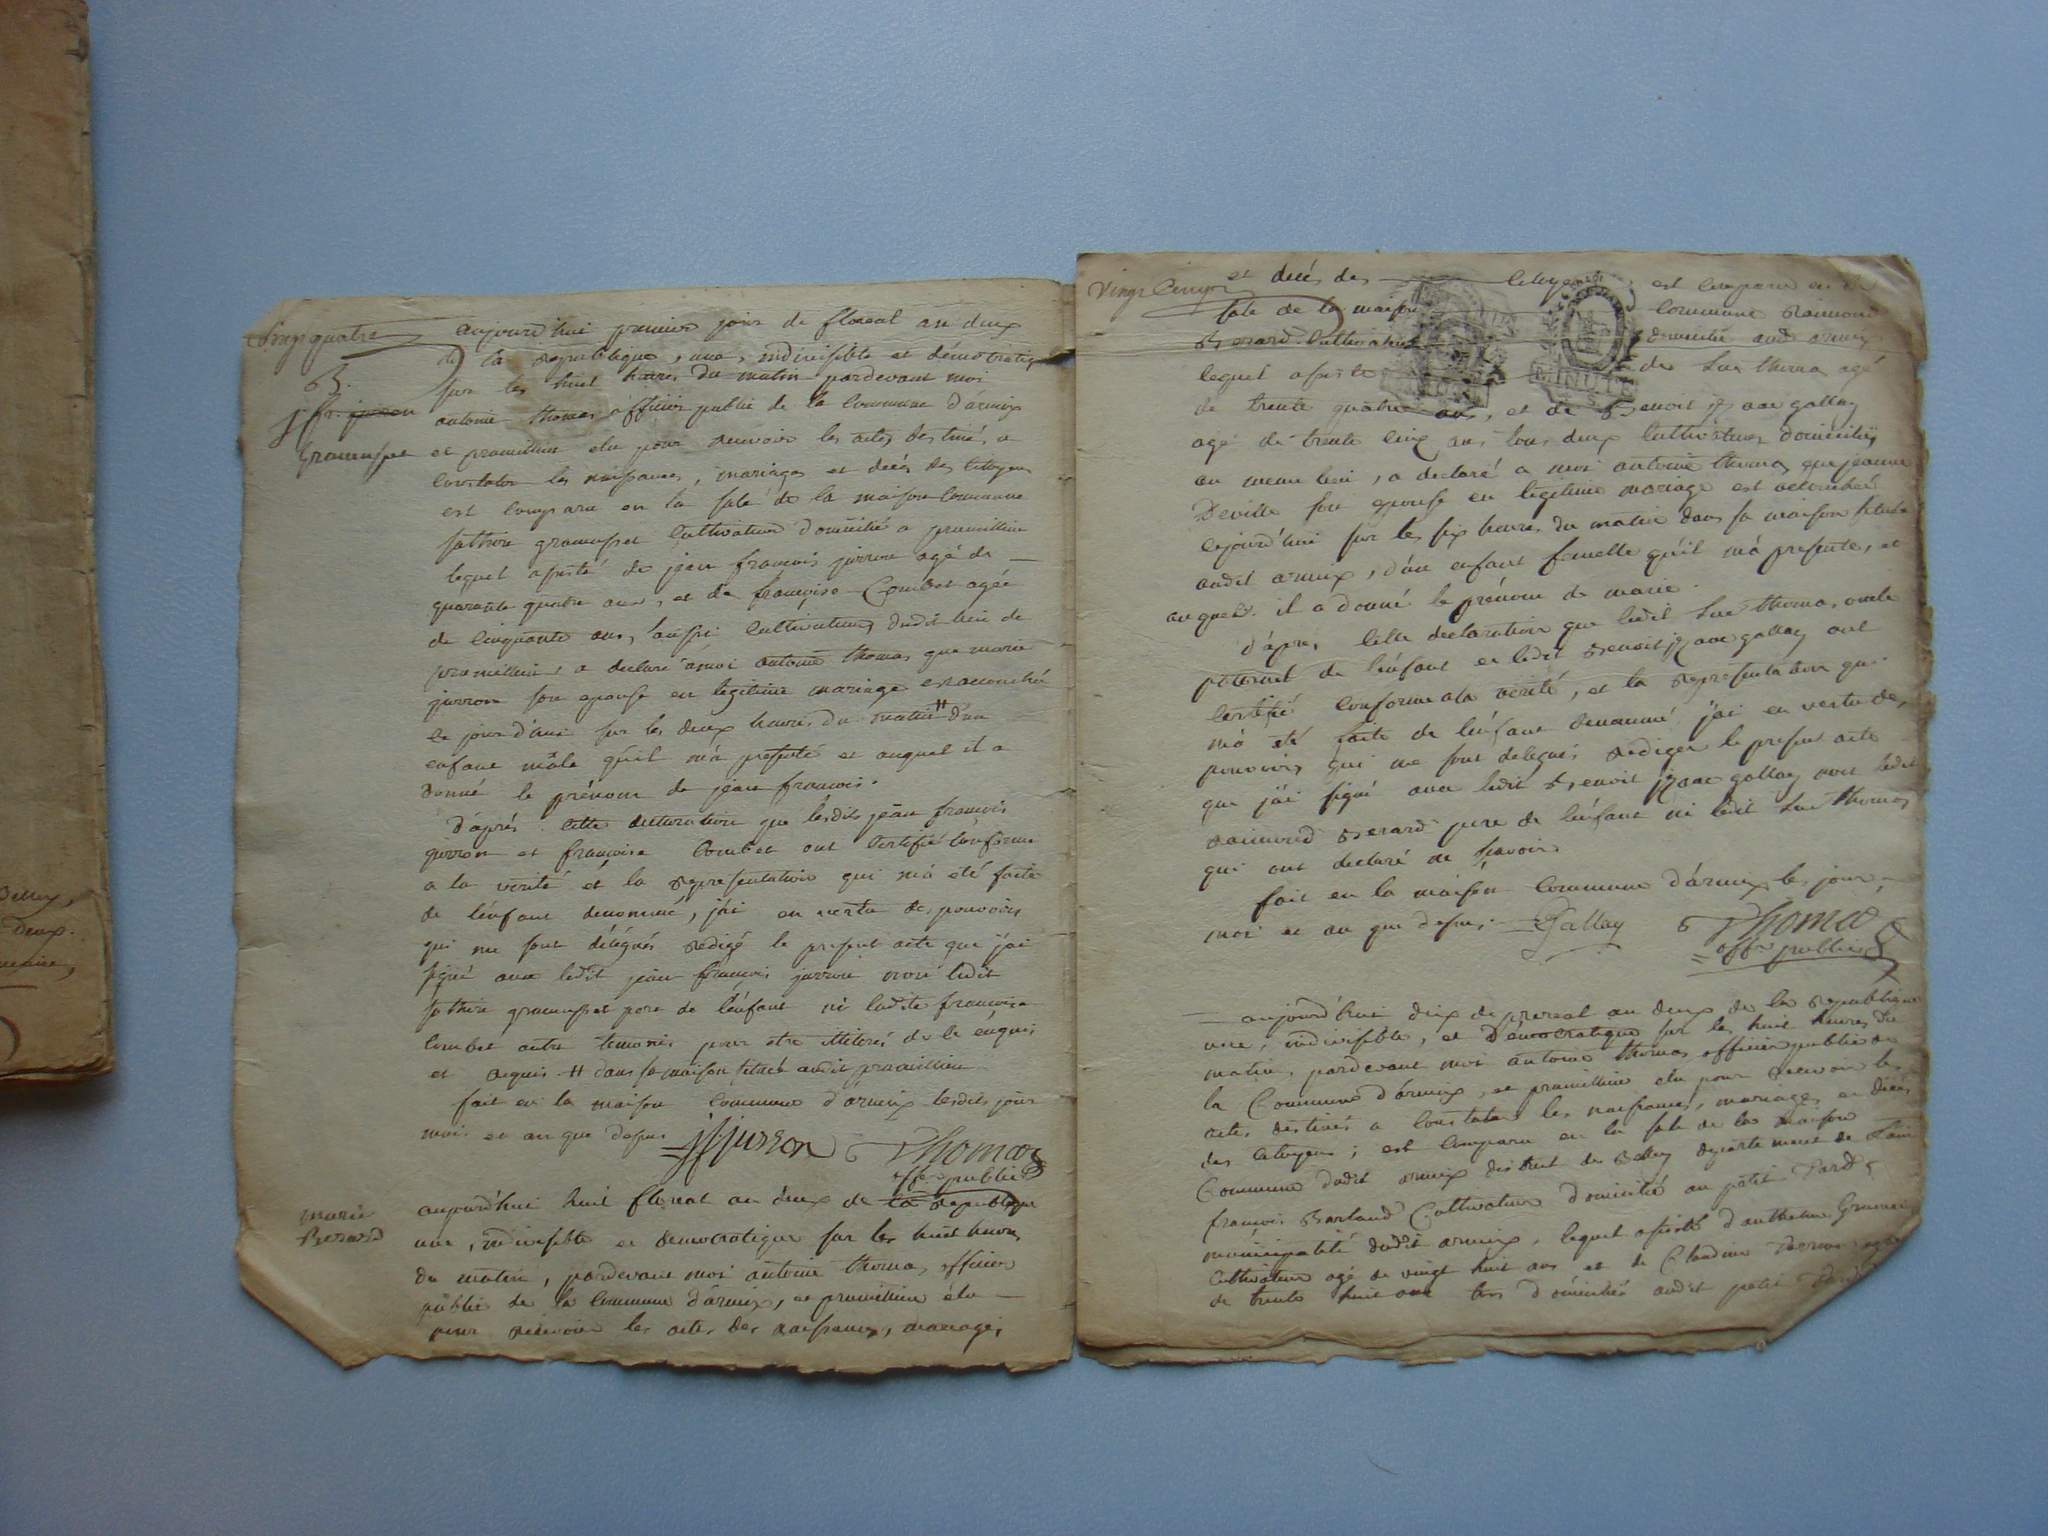 Vingt quatre
aujourd'hui premier jour de floreal an deux
de la republique, une, indivisible et démocratique
sur les huit heures du matin pardevant moi
B.
jn. fr. jurron
Gramusset
antoine thomas officier public de la Commune d'armix
et premillieu elu pour recevoir les actes destinés a
Constater les naissances, mariages et decés des Citoyens
est Comparu en la sale de la maison Commune
gramusset Cultivateur domicilié a premillieu
lequel assisté de jean françois jurron agé de
quarante quatre ans, et de françoise Combet agée
de Cinquante ans, aussi Cultivateurs dudit lieu de
premillieu, a declaré a moi antoine thomas que marie
jurron son epouse en legitime mariage est accouchée
ce jour d'hui sur les deux heures du matin # d'un
enfant mâle qu'il m'a presenté et auquel il a
donné le prénom de jean françois.
d'aprés cette declaration que lesdits jean françois
jurron et françoise Combet ont Certifié Conforme
a la verité et la representation qui m'a été faite
de l'enfant denommé, j'ai en vertu des pouvoirs
qui me sont délégués redigé le present acte que j'ai
signé avec ledit jean françois jurron non ledit
gramusset pere de l'enfant ni ladite françoise
Combet autre temoins pour etre illiterés de ce enquis
et requis # dans sa maison située audit premillieu
fait en la maison Commune d'armix lesdits jour
mois et an que dessus jfjurron Thomas
offr. public
marie
Berard
aujourd'hui huit floreal an deux de la republique
une, indivisible et democratique sur les huit heures
du matin, pardevant moi antoine thomas officier
public de la Commune d'armix, et premillieu elu
pour recevoir les actes des naissances, mariages,
Vingt Cinq
et decés des Citoyens est Comparu en la
sale de la maison Commune Raimond
Berard Cultivateur domicilié audit armix
lequel assisté de Luc thomas agé
de trente quatre ans, et de Benoit Izaac gallay
agé de trente Cinq ans tous deux Cultivateurs domiciliés
au meme lieu, a declaré a moi antoine thomas que jeanne
Deville son epouse en legitime mariage est accouchée
cejourd'hui sur les six heures du matin dans sa maison située
audit armix, d'un enfant femelle qu'il m'a presenté, et
auquel il a donné le prénom de marie.
d'aprés cette declaration que ledit Luc thomas, oncle
paternel de l'enfant et ledit Benoit Izaac gallay ont
Certifié Conforme a la verité, et la representation qui
m'a été faite de l'enfant denommé j'ai en vertu des
pouvoirs qui me sont delegués rediger le present acte
que j'ai signé avec ledit Benoit Izaac gallay non ledit
raimond Berard pere de l'enfant ni ledit Luc thomas
qui ont declaré ne sçavoir
fait en la maison Commune d'armix les jour,
mois et an que dessus. Gallay Thomas
offr. public
MINUTE
aujourd'hui dix de prereal an deux de la republique
une, indivisible, et Démocratique sur les huit heures du
matin, pardevant moi antoine thomas officier public de
la Commune d'armix, et premillieu elu pour recevoir les
actes destinés a Constater les naissances, mariages et decés
des Citoyens; est Comparu en la sale de la maison
Commune dudit armix district de Belley departement de l'ain
françois Barland Cultivateur domicilié au petit
municipalité dudit armix, lequel assisté d'anthelme
Cultivateur agé de vingt huit ans et de Claudine
de trente huit ans tous domiciliés audit petit
Belley,
deux.